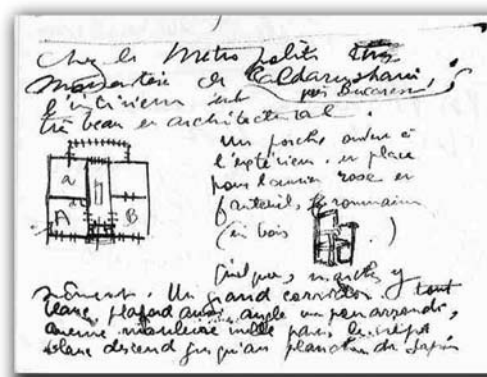 chez le Metropolite
monastère de Caldarushani,
près Bucarest
l'intérieur est
très beau et architectural.
Un porche ouvre à
l'extérieur. en place
pour en
fauteuils roumains
(en bois .)
a
A
B
Quelques marches y
mènent. Un grand corridor. tout
blanc, plafond aussi, angle un peu arrondi,
aucune moulure nulle part. le crépi
blanc descend jusqu'au plancher de sapin